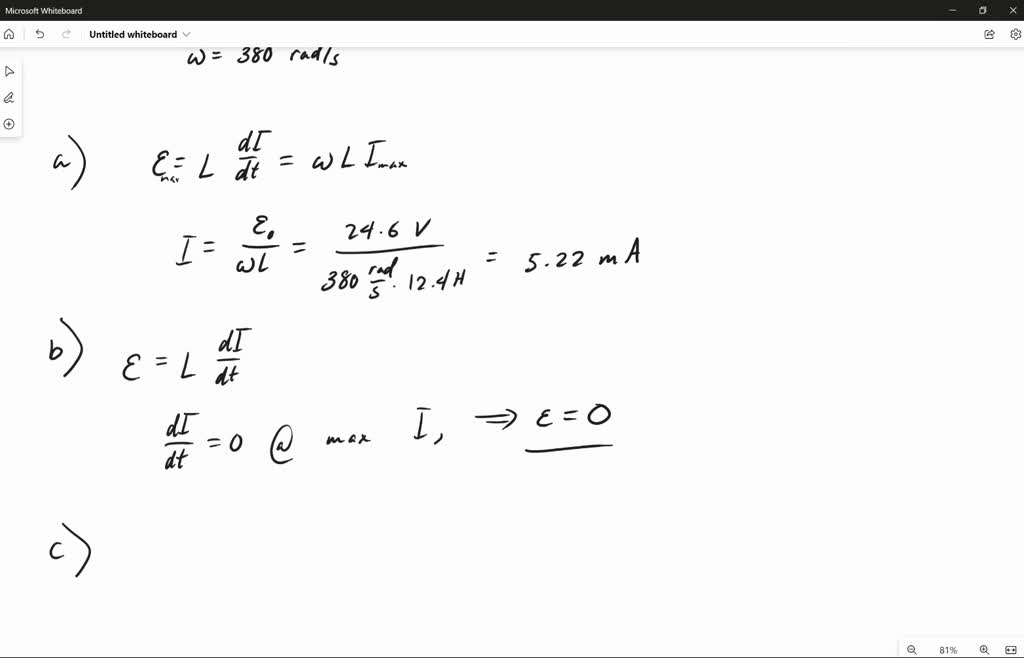 Microsoft Whiteboard
Untitled whiteboard
ω = 380 rad/s
a) ε_max = L dI/dt = ωL I_max
I = ε₀/ωL = 24.6 V / 380 rad/s · 12.4H = 5.22 mA
b) ε = L dI/dt
dI/dt = 0 @ max I, ⇒ ε = 0
c)
81%